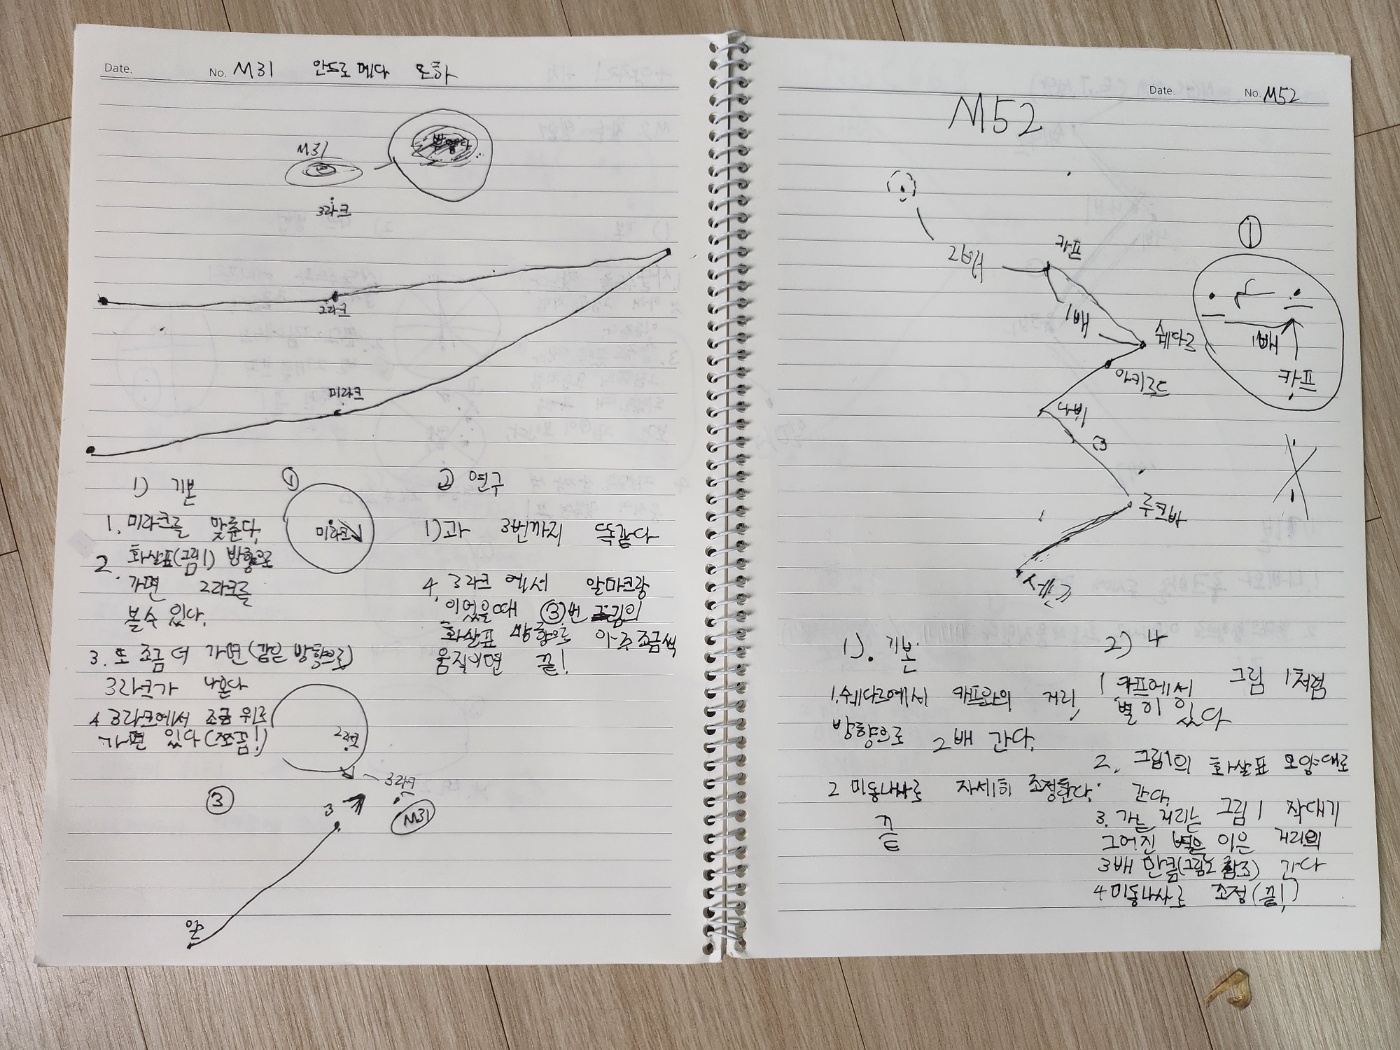 Date.
No. M31 안드로메다 은하
M31
3라크
2라크
미라크
1) 기본
①
1. 미라크를 맞춘다.
미라크
2. 화살표(그림1) 방향으로
가면 2라크를
볼수 있다.
3. 또 조금 더 가면(같은 방향으로)
3라크가 나온다
4. 3라크에서 조금 위로
가면 있다(쪼끔!)
2라크
3라크
③
3
M31
알
② 연구
1)과 3번까지 똑같다
4. 3라크에서 알마크랑
이었을때 ③번 그림의
화살표 방향으로 아주 조금씩
움직이면 끝!
Date.
No. M52
M52
2배
카프
1배
쉐다르
아키르드
나비
루크바
세긴
①
1배
카프
1). 기본
1. 쉐다르에서 카프와의 거리,
방향으로 2배 간다.
2 미동나사로 자세히 조정한다.
끝
2) 나
1 카프에서 그림 1처럼
별이 있다
2. 그림1의 화살표 모양대로
간다.
3. 가는 거리는 그림 1 작대기
그어진 별을 이은 거리의
3배 만큼(그림2 참조) 간다
4 미동나사로 조정(끝!)